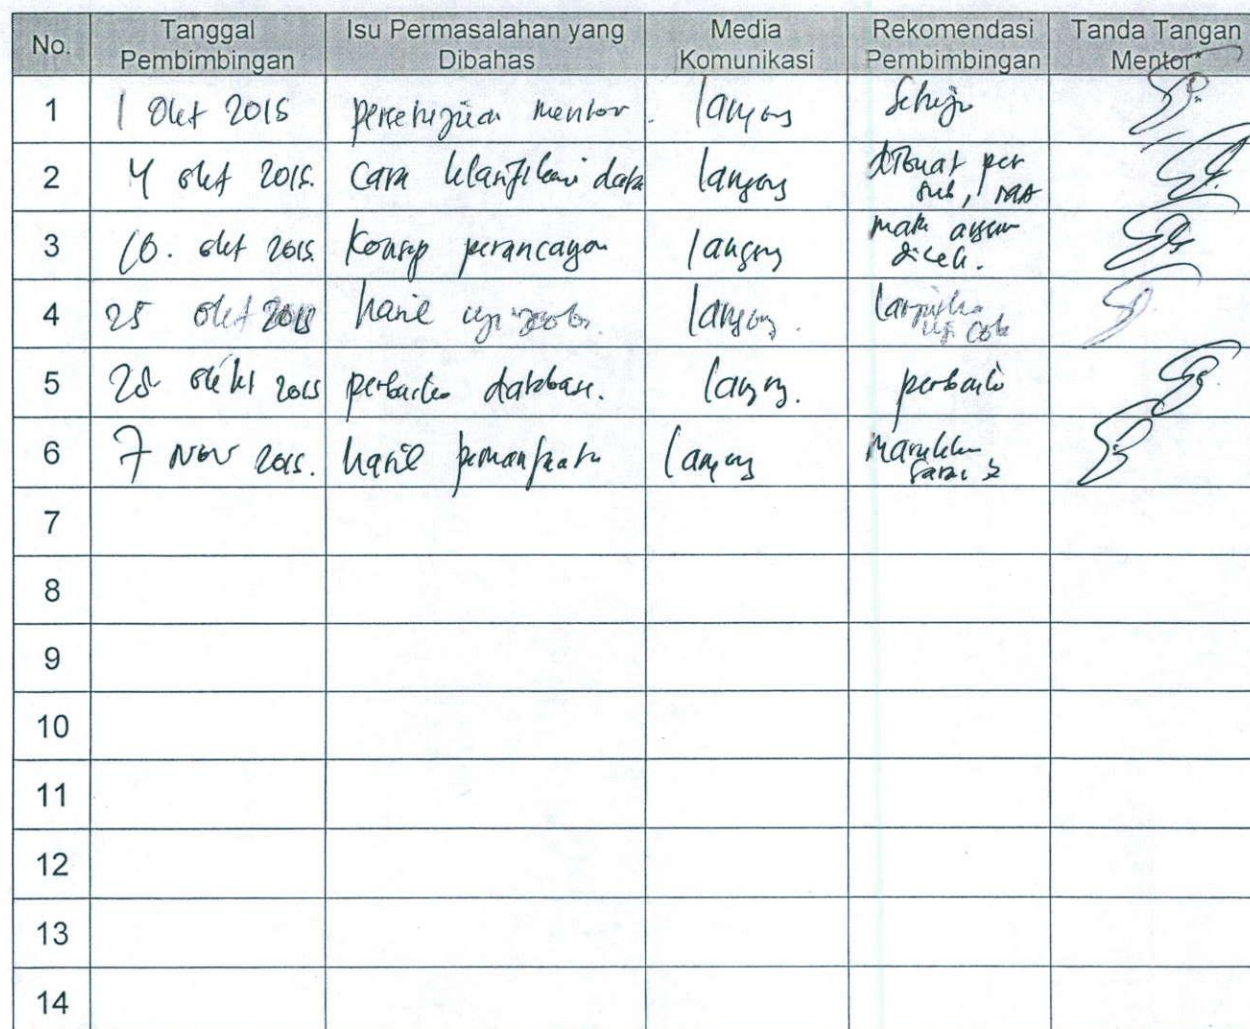 No. Tanggal Pembimbingan Isu Permasalahan yang Dibahas Media Komunikasi Rekomendasi Pembimbingan Tanda Tangan Mentor
1 1 Okt 2015 persetujuan mentor. langsung Setuju
2 4 okt 2015. cara klasifikasi data langsung dibuat per sub,
3 10. okt 2015. Konsep perancangan langsung dicek.
4 25 okt 2015 hasil uji coba. langsung. uji coba
5 28 okt 2015 perbaikan database. langsung. perbaiki
6 7 Nov 2015. hasil pemanfaatan langsung Masukkan
7
8
9
10
11
12
13
14